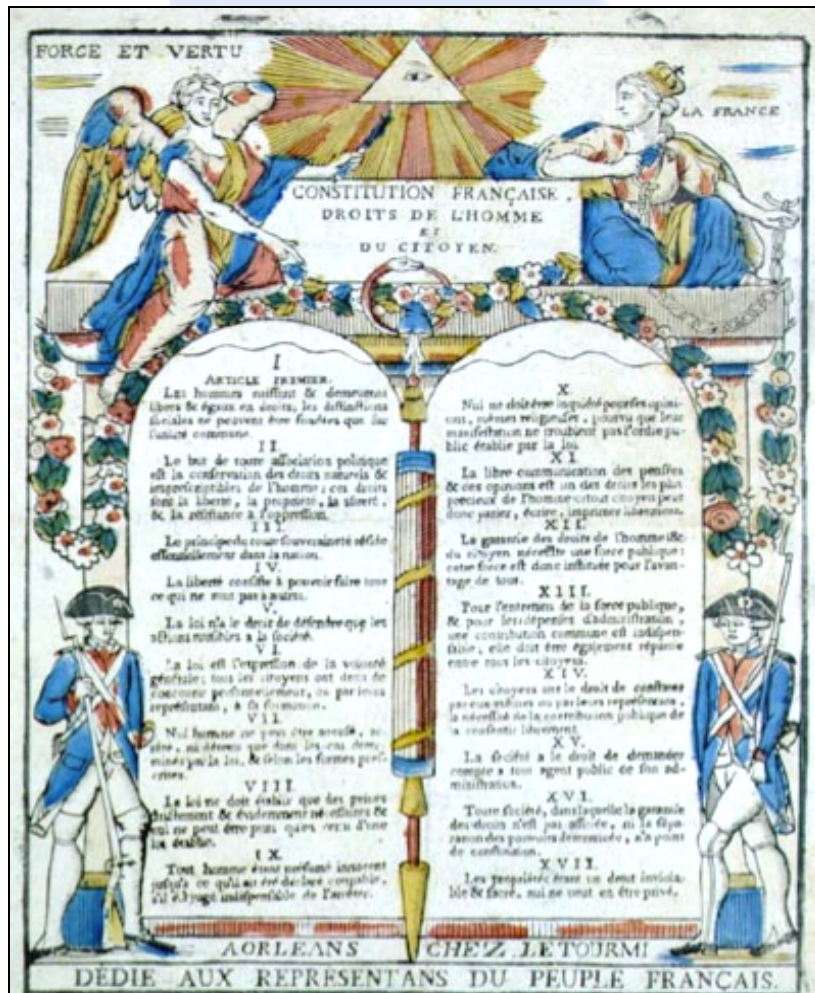 FORCE ET VERTU
LA FRANCE
CONSTITUTION FRANÇAISE,
DROITS DE L'HOMME
ET
DU CITOYEN.
I
ARTICLE PREMIER.
Les hommes naissent & demeurent
libres & égaux en droits, les distinctions
sociales ne peuvent être fondées que sur
l'utilité commune.
II.
Le but de toute association politique
est la conservation des droits naturels &
imprescriptibles de l'homme; ces droits
sont la liberté, la propriété, la sûreté,
& la résistance à l'oppression.
III.
Le principe de toute souveraineté réside
essentiellement dans la nation.
IV.
La liberté consiste à pouvoir faire tout
ce qui ne nuit pas à autrui.
V.
La loi n'a le droit de défendre que les
actions nuisibles à la société.
VI.
La loi est l'expression de la volonté
générale; tous les citoyens ont droit de
concourir personnellement, ou par leurs
représentans, à sa formation.
VII.
Nul homme ne peut être accusé,
ni détenu que dans les cas
par la loi, & selon les formes
VIII.
La loi ne doit établir que des peines
strictement & évidemment nécessaires &
nul ne peut être puni qu'en vertu d'une
loi établie.
IX.
Tout homme étant présumé innocent
jusqu'à ce qu'il ait été déclaré coupable,
s'il est jugé indispensable de l'arrêter.
X.
Nul ne doit être inquiété pour ses opini-
ons, mêmes religieuses, pourvu que leur
manifestation ne troublent pas l'ordre pu-
blic établie par la loi.
XI.
La libre communication des pensées
& des opinions est un des droits les plus
précieux de l'homme: tout citoyen peut
donc parler, écrire, imprimer librement.
XII.
La garantie des droits de l'homme &
du citoyen nécessite une force publique;
cette force est donc instituée pour l'avan-
tage de tous.
XIII.
Pour l'entretien de la force publique,
& pour les dépenses d'administration,
une contribution commune est indispen-
sable; elle doit être également répartie
entre tous les citoyens.
XIV.
Les citoyens ont le droit de constater
par eux mêmes ou par leurs représentans,
la nécessité de la contribution publique de
la consentir librement.
XV.
La société a le droit de demander
compte à tout agent public de son ad-
ministration.
XVI.
Toute société, dans laquelle la garantie
des droits n'est pas assurée, ni la sépa-
ration des pouvoirs déterminée, n'a point
de constitution.
XVII.
Les propriétés étant un droit inviola-
ble & sacré, nul ne peut en être privé.
A ORLEANS CHEZ LETOURMI
DÉDIÉ AUX REPRÉSENTANS DU PEUPLE FRANÇAIS.